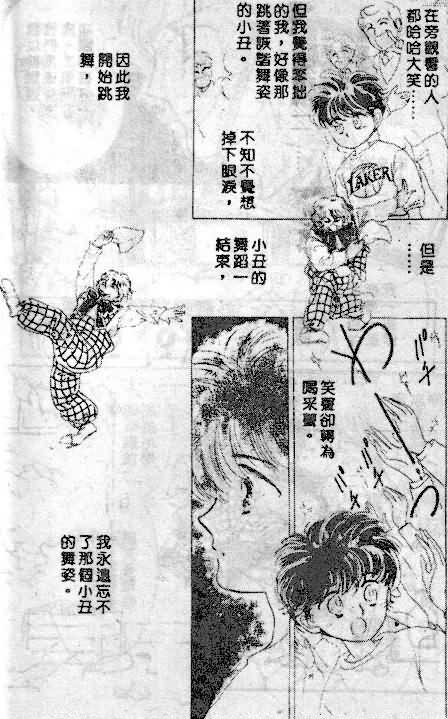 在旁觀看的人
都哈哈大笑……
但我覺得笨拙
的我，好像那
跳著詼諧舞姿
的小丑。
不知不覺想
掉下眼淚，
LAKER
但是
……
小丑的
舞蹈一
結束，
わ
っ
笑聲卻轉為
喝采聲。
パ
パ
パ
パ
因此我
開始跳
舞，
我永遠忘不
了那個小丑
的舞姿。